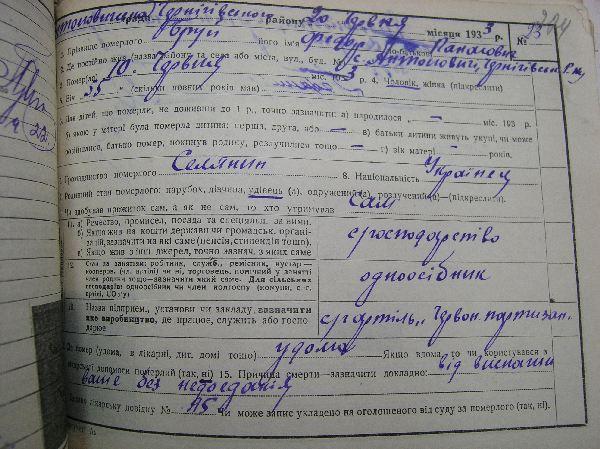 Антоновичи Чернігівського району 20 Червня місяця 1933 р. № 23
1. Прізвище померлого його імя Федір по-батькові Панасович
2. Де постійно жив (назва району та села або міста, вул., буд. №) с. Антоновичі, Чернігівськ. р-ну
3. Помер(ла) 10. Червня міс. 1933 р. 4. Чоловік, жінка (підкреслити)
5. Вік 35 (скільки повних років мав)
6. Для дітей, що померли, не доживши до 1 р., точно зазначити: а) народилося — міс. 193 р.
б) якою у матері була померла дитина: перша, друга, або — в) батьки дитини живуть укупі, чи може
розійшлися, батько помер, покинув родину, розлучилися тощо — г) вік матері — років.
7. Громадянство померлого Селянин 8. Національність Українець
9. Родинний стан померлого: парубок, дівчина, удівець (а), одружений (а), розлучений (а) — (підкреслити).
10. Чи здобував прожиток сам, а як не сам, то хто утримував Сам
11. а) Ремество, промисел, посада та спеціяльн. за ними.
б) Якщо жив на кошти державн чи громадськ. органі-
зацій, зазначити на які саме (пенсія, стипендія тощо),
в) Якщо жив з інш джерел, точно зазнач. з яких саме
с/господарство
12. Стан за заняттям: робітник, служб., ремісник, кустар—
коопер. (чл. артілі) чи ні, торговець, помічний у занятті
член родини тощо—зазначити який саме. Для сільських
господарів: одноосібник чи член колгоспу (комуни, с.-г.
артілі, СОЗ'у)
одноосібник
13. Назва підприєм., установи чи закладу, зазначити
яке виробництво, де працює, служить або госпо-
дарює
с/г артіль „Червон. партизан"
14. Де помер (удома, в лікарні, дит. домі тощо) удома Якщо вдома, то чи користувався з
лікарської допомоги померлий (так, ні) 15. Причина смерти—зазначити докладно: від виснаги
ваше без недоєдання
лікарську повідку № А5 Чи може запис укладено на оголошеного від суду за померлого (так, ні).